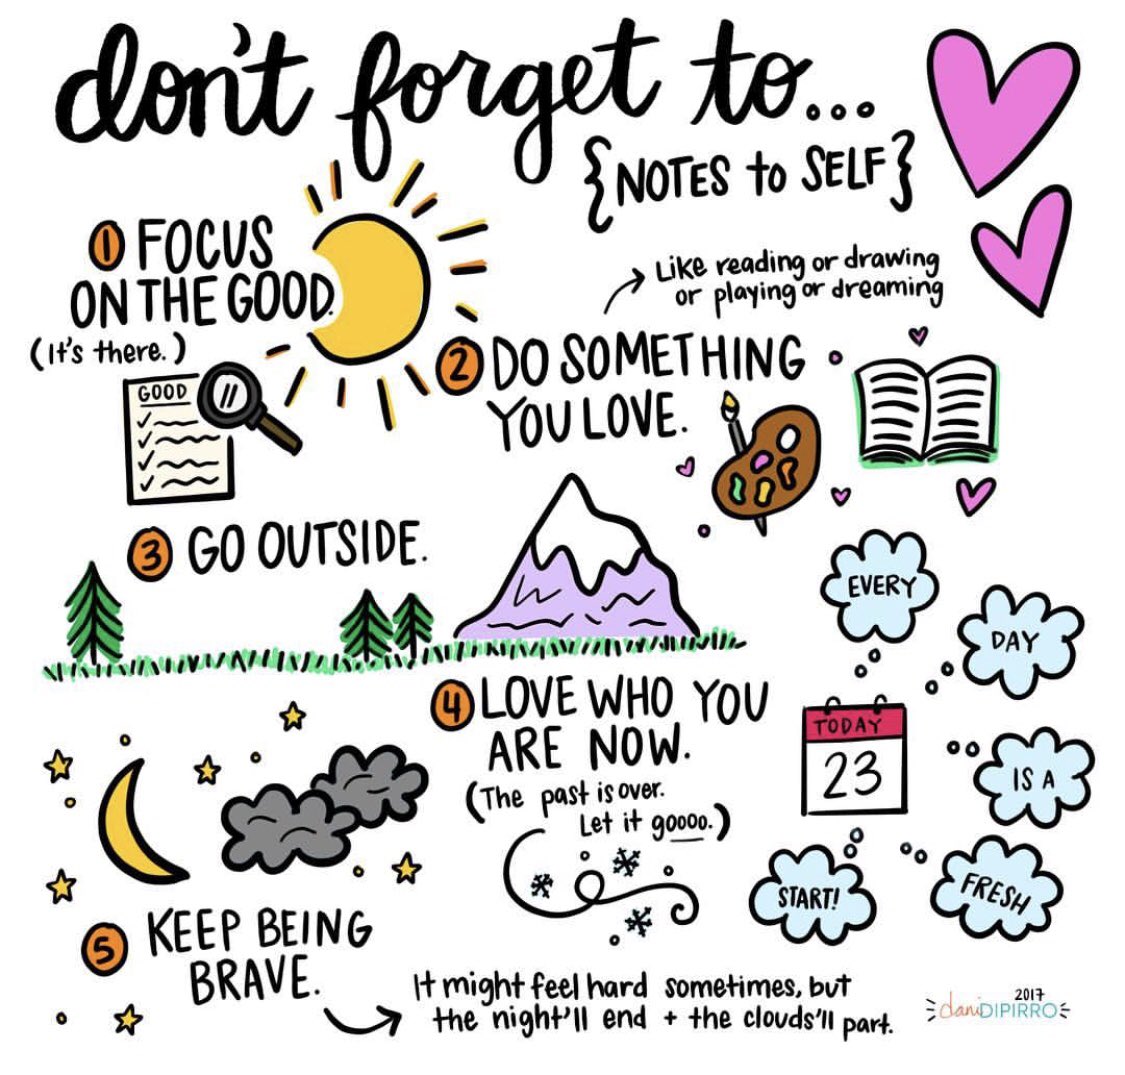 don't forget to...
{NOTES to SELF}
1 FOCUS
ON THE GOOD.
(It's there.)
GOOD
Like reading or drawing
or playing or dreaming
2 DO SOMETHING
YOU LOVE.
3 GO OUTSIDE.
4 LOVE WHO YOU
ARE NOW.
(The past is over.
Let it goooo.)
EVERY
DAY
IS A
FRESH
START!
TODAY
23
5 KEEP BEING
BRAVE.
It might feel hard sometimes, but
the night'll end + the clouds'll part.
2017
daniDIPIRRO